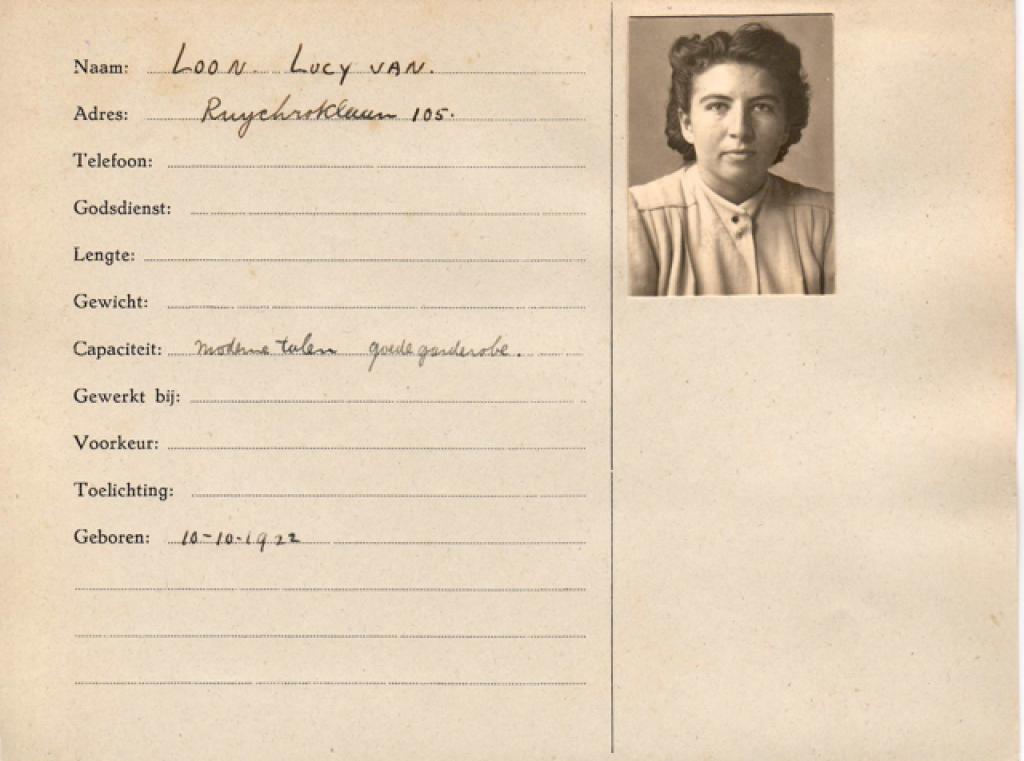 Naam: LOON. LUCY VAN.
Adres: Ruychroklaan 105.
Telefoon:
Godsdienst:
Lengte:
Gewicht:
Capaciteit: moderne talen goede garderobe.
Gewerkt bij:
Voorkeur:
Toelichting:
Geboren: 10-10-1922